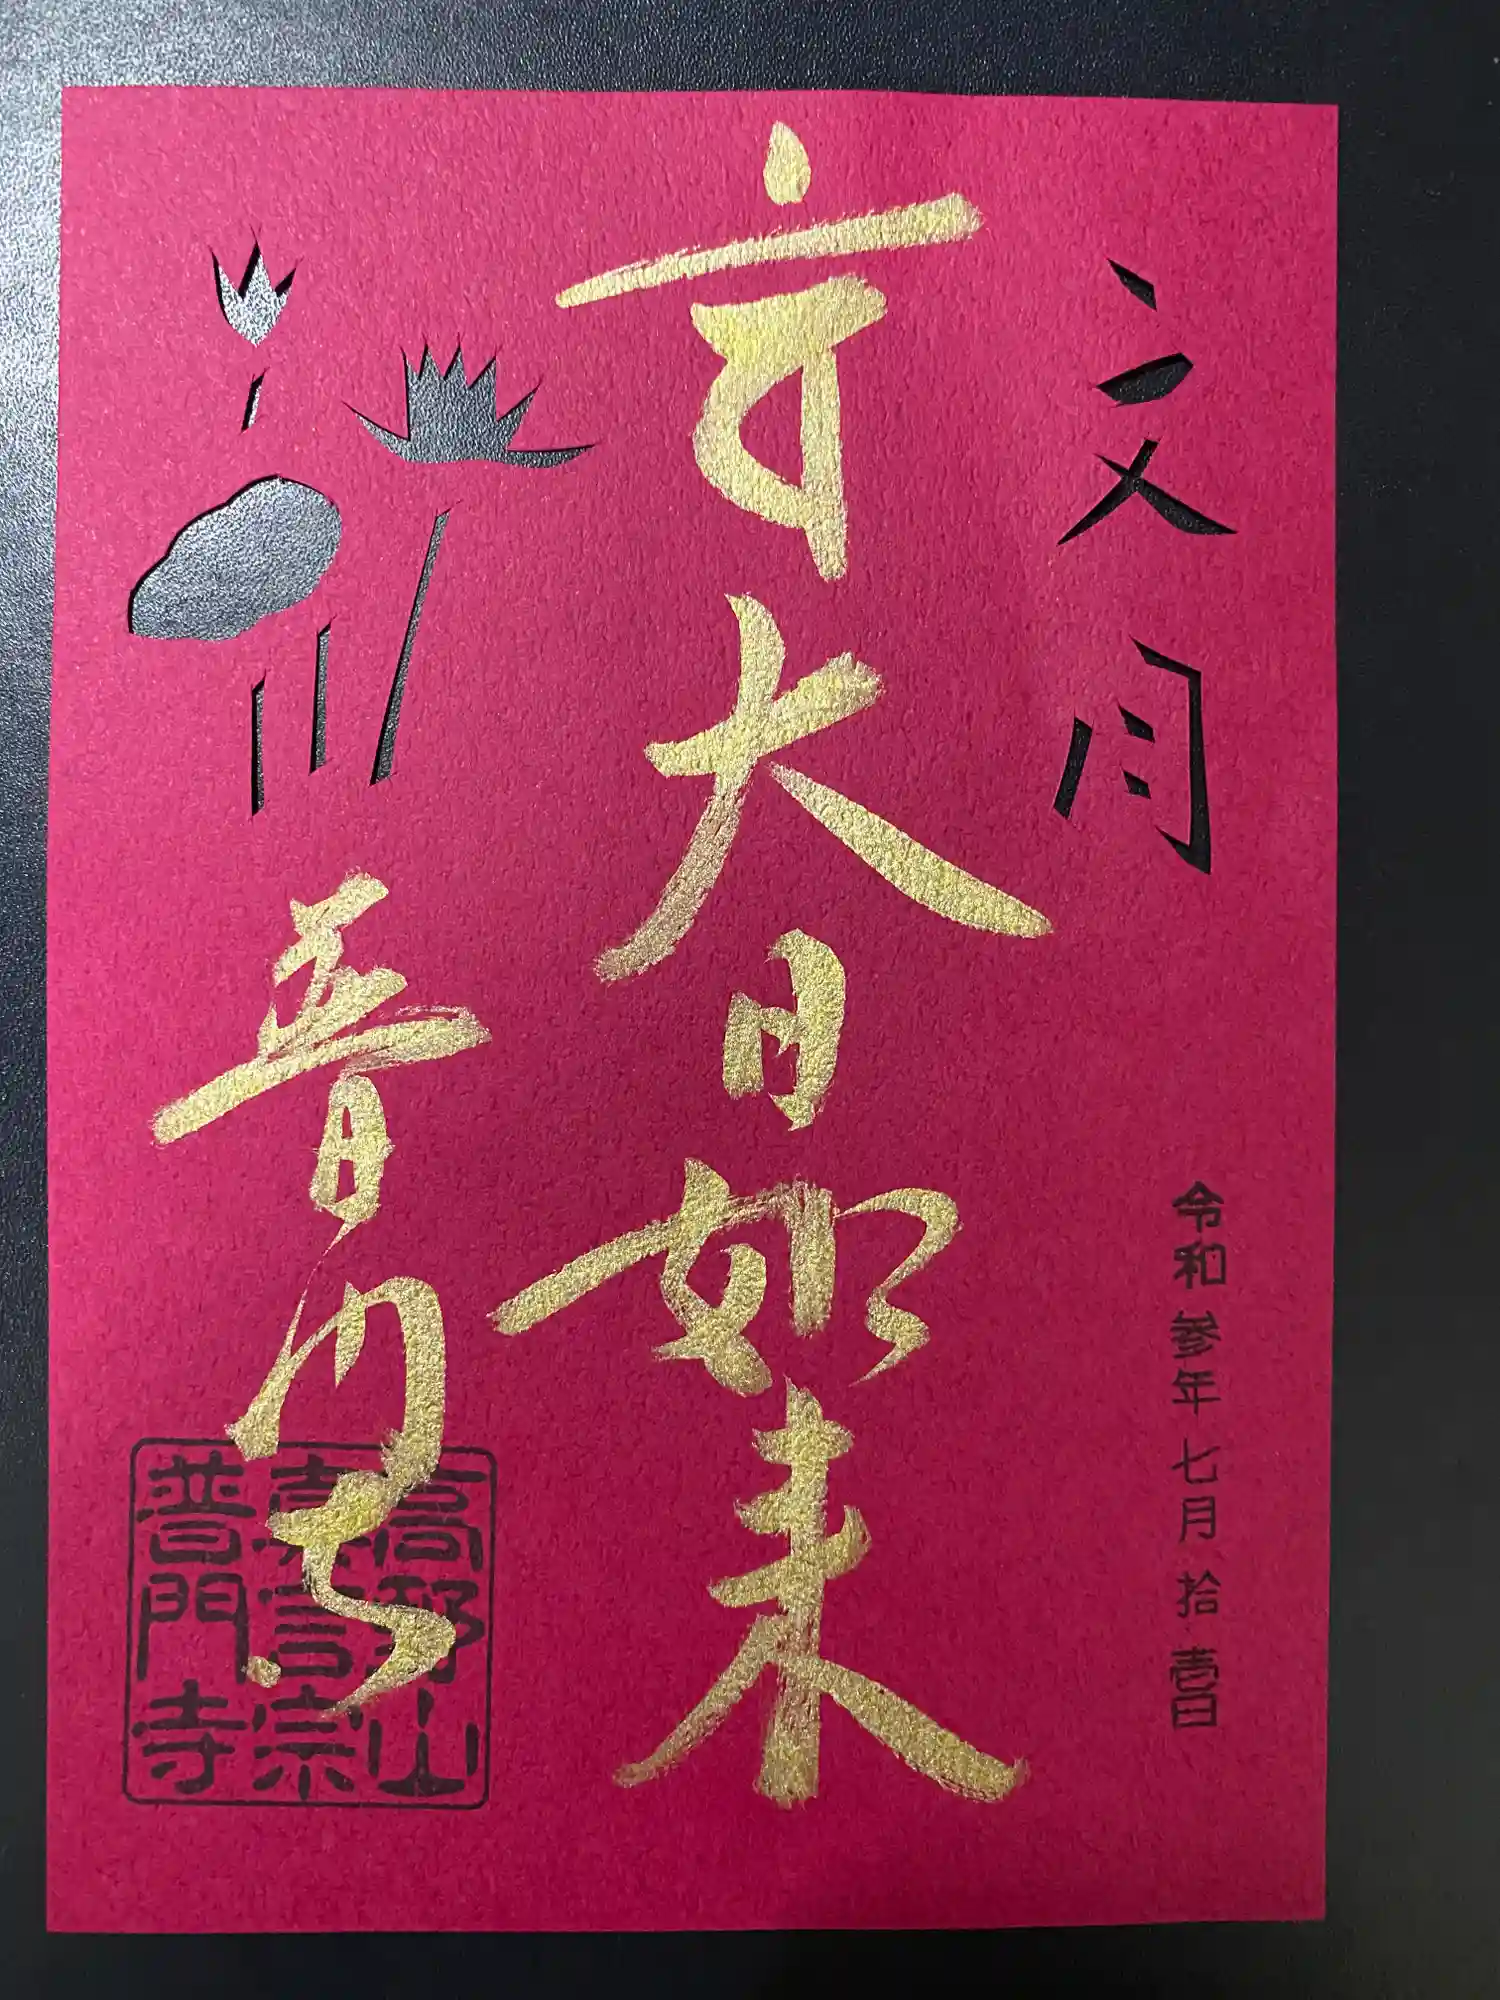 文月
令和参年七月拾壱日
𑖪𑖽 大日如来
普門寺
高野山
真言宗
普門寺